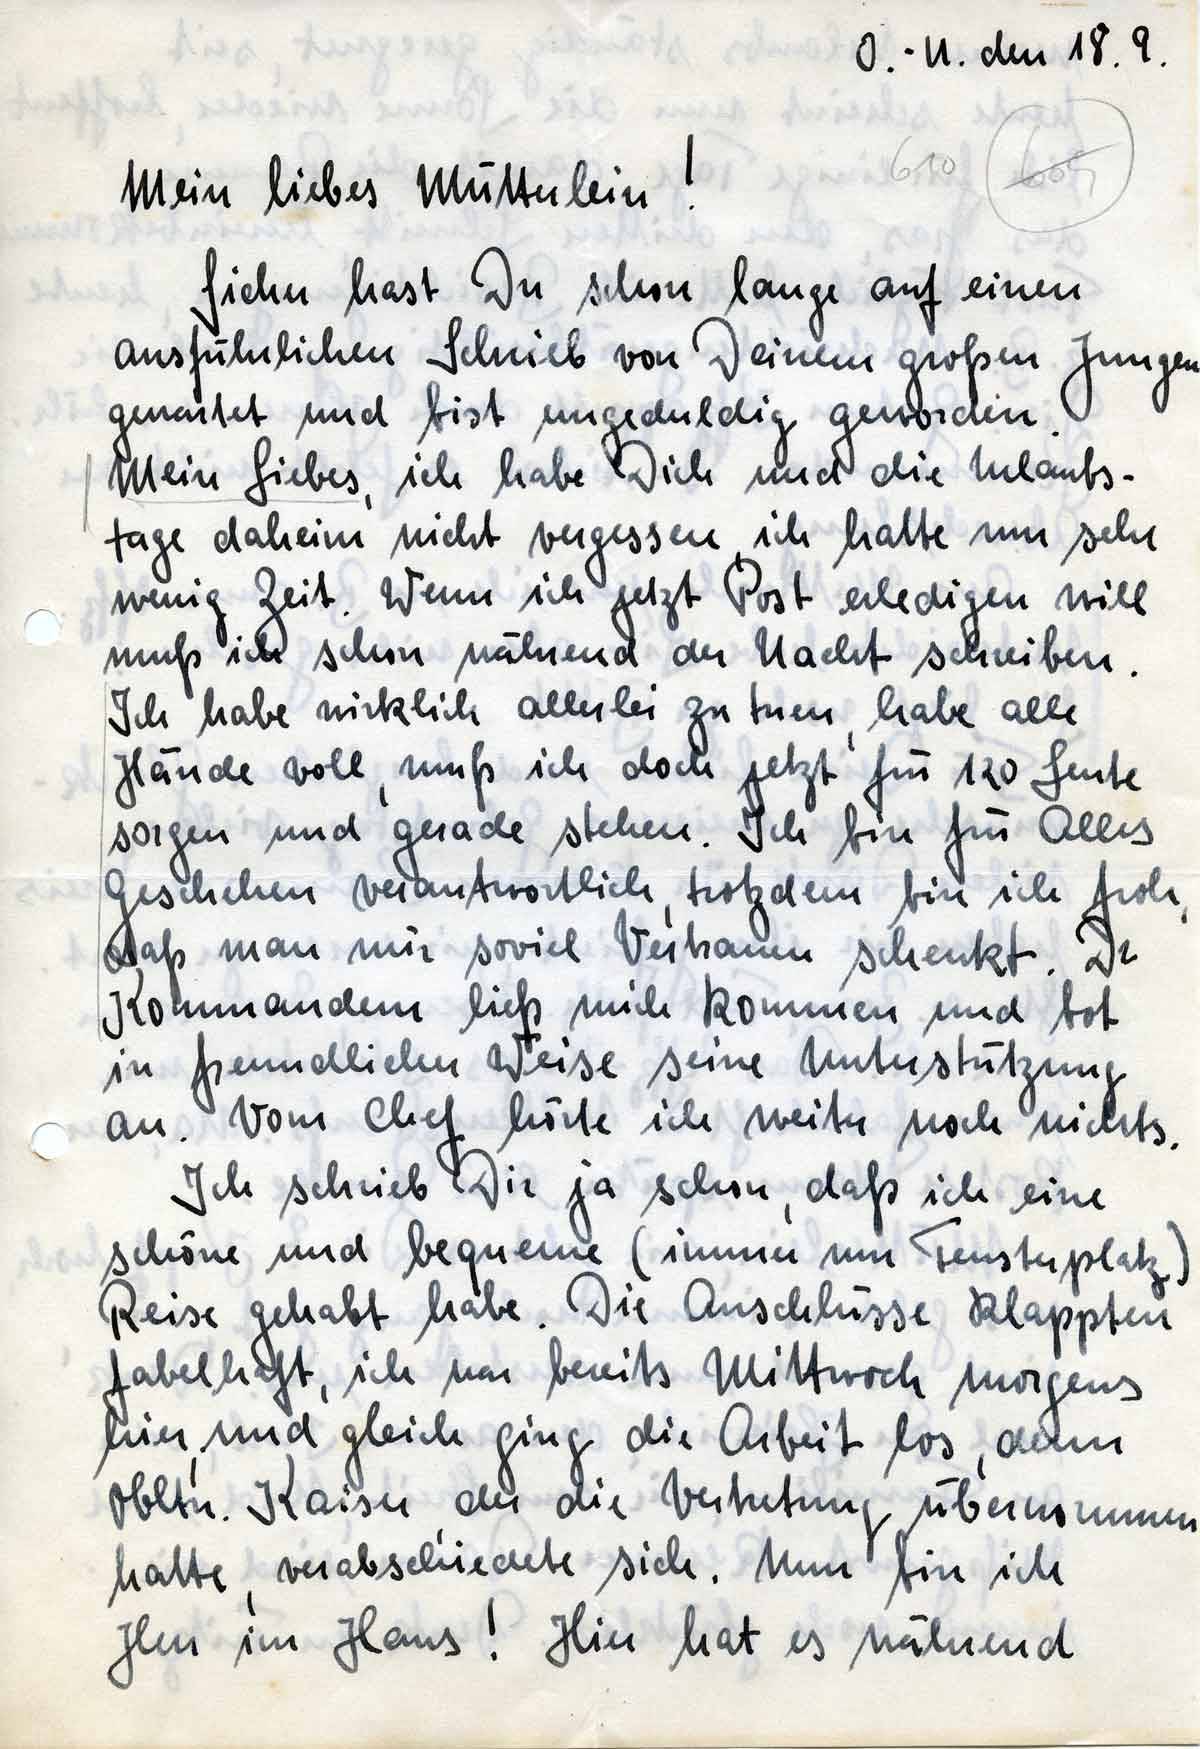 O.-U. den 18.9.
610 605
Mein liebes Mütterlein!
Sicher hast Du schon lange auf einen
ausführlichen Schrieb von Deinem großen Jungen
gewartet und bist ungeduldig geworden.
Mein Liebes, ich habe Dich und die Urlaubs-
tage daheim nicht vergessen, ich hatte nur sehr
wenig Zeit. Wenn ich jetzt Post erledigen will
muß ich schon während der Nacht schreiben.
Ich habe wirklich allerlei zu tuen, habe alle
Hände voll, muß ich doch jetzt für 120 Leute
sorgen und gerade stehen. Ich bin für Alles
Geschehen verantwortlich, trotzdem bin ich froh,
daß man mir soviel Vertrauen schenkt. Der
Kommandeur ließ mich kommen und bot
in freundlicher Weise seine Unterstützung
an. Vom Chef hörte ich weiter noch nichts.
Ich schrieb Dir ja schon, daß ich eine
schöne und bequeme (immer nur Fensterplatz)
Reise gehabt habe. Die Anschlüsse klappten
fabelhaft, ich war bereits Mittwoch morgens
hier, und gleich ging die Arbeit los, denn
Obltn. Kaiser der die Vertretung übernommen
hatte, verabschiedete sich. Nun bin ich
Herr im Haus! Hier hat es während